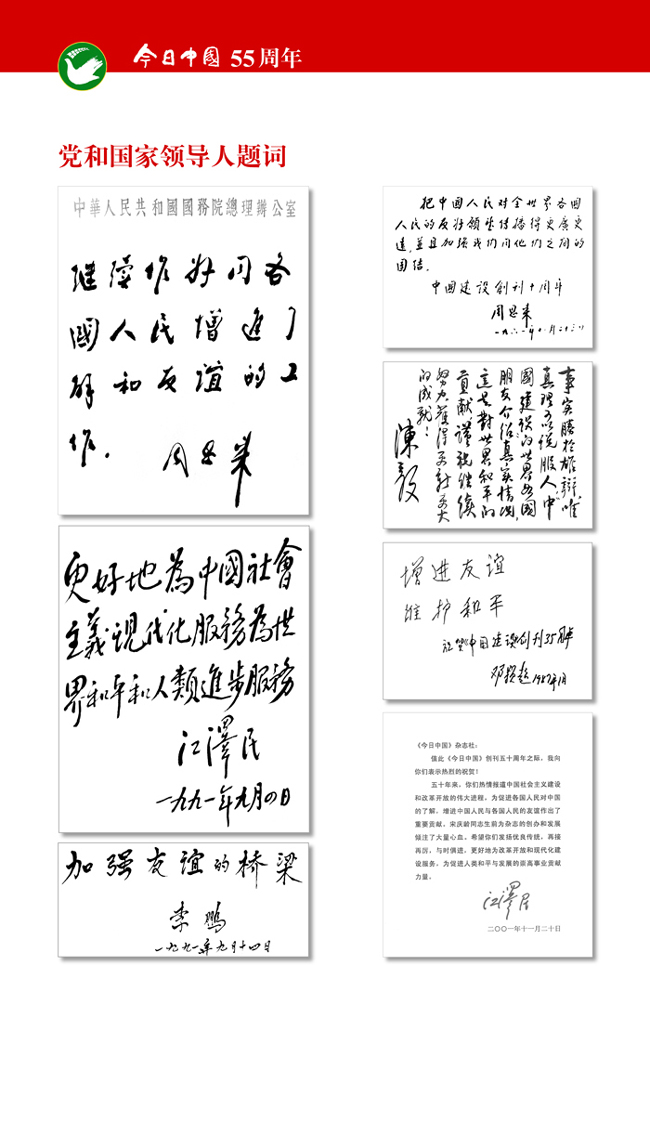 今日中國 55周年
党和国家领导人题词
中華人民共和國國務院總理辦公室
继续作好同各
國人民增進了
解和友谊的工
作.
周恩来
更好地為中國社會
主義現代化服務為世
界和平和人類進步服務
江澤民
一九九一年九月四日
加强友谊的桥梁
李鹏
一九九一年九月十四日
把中國人民对全世界各國
人民的友好願望传播得更廣更
遠,並且加强我们同他们之间的
团结。
中國建设創刊十周年
周恩来
事实勝於雄辯,唯
真理可以说服人.中
國建设向世界各國
朋友介绍真实情况,
這是對世界和平的
貢献.謹祝继续
努力獲得更新更大
的成就!
陳毅
增进友谊
维护和平
祝贺《中国建设》创刊35周年
邓颖超 1987年1月
《今日中国》杂志社:
值此《今日中国》创刊五十周年之际,我向
你们表示热烈的祝贺!
五十年来,你们热情报道中国社会主义建设
和改革开放的伟大进程,为促进各国人民对中国
的了解,增进中国人民与各国人民的友谊作出了
重要贡献。宋庆龄同志生前为杂志的创办和发展
倾注了大量心血。希望你们发扬优良传统,再接
再厉,与时俱进,更好地为改革开放和现代化建
设服务,为促进人类和平与发展的崇高事业贡献
力量。
江澤民
二〇〇一年十一月二十日